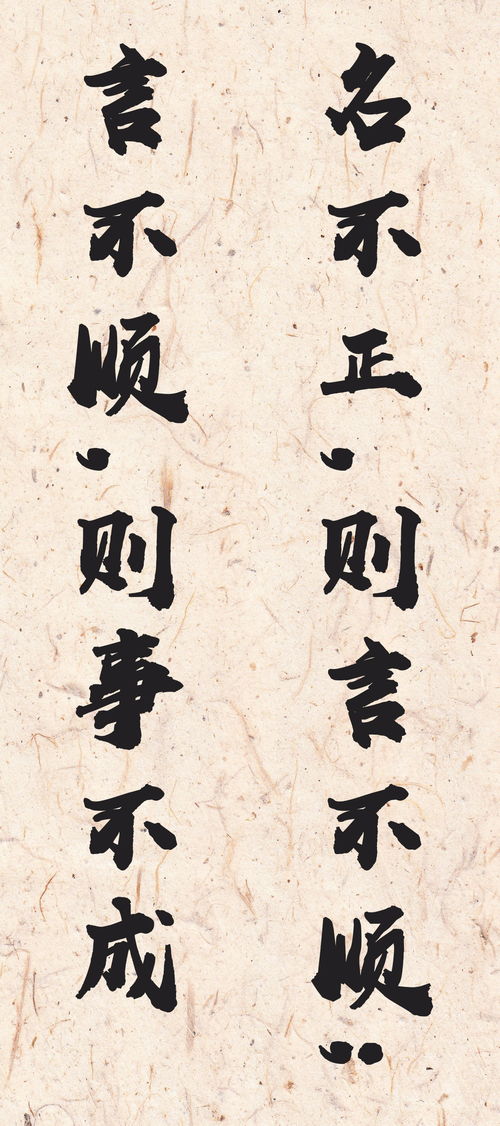 名不正,则言不顺;
言不顺,则事不成